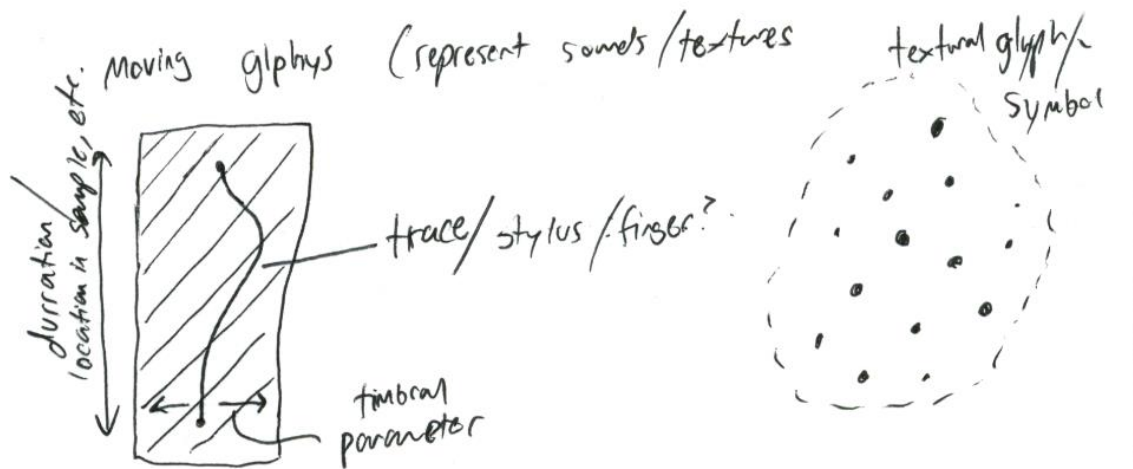 Moving glphys (represent sounds/textures
textural glyph/
symbol
durration/
location in sample, etc.
trace/stylus/finger?
timbral
parameter